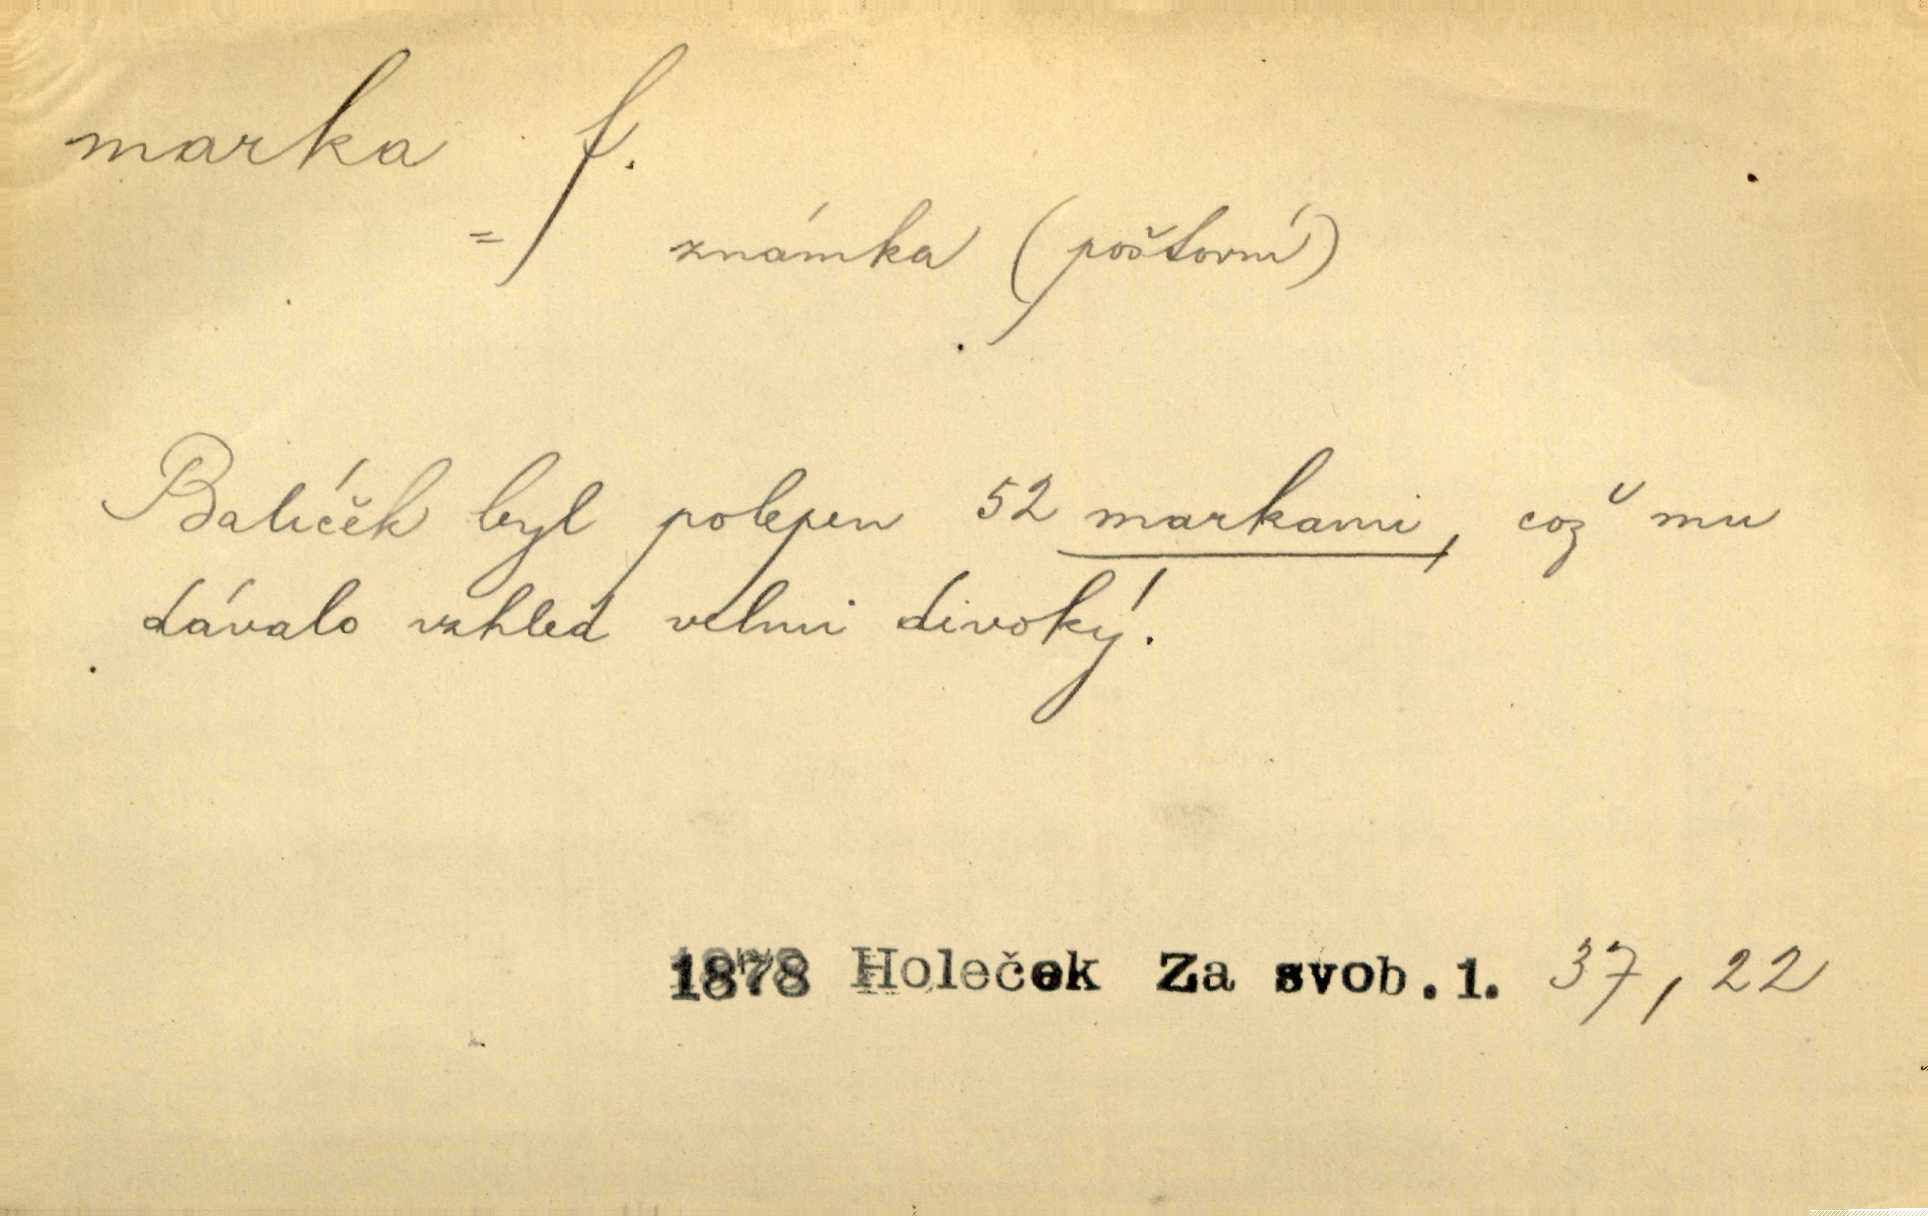 marka f.
= známka (poštovní)
Balíček byl polepen 52 markami, což mu
dávalo vzhled velmi divoký.
1878 Holeček Za svob.1. 37, 22